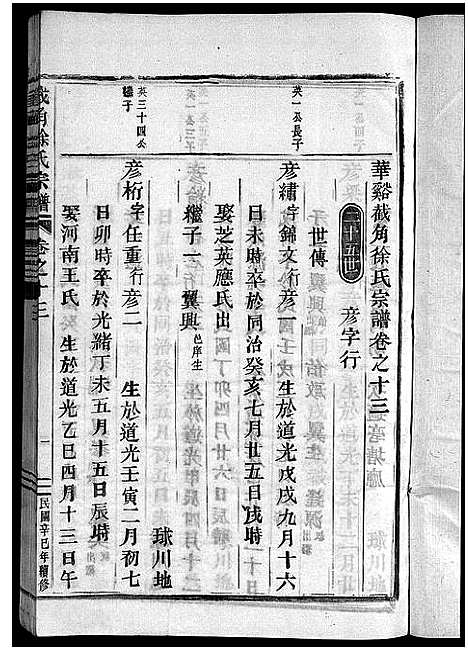 華谿截角徐氏宗譜卷之十三
二十五世 彦字行
英一公長子
彦繡字錦文行彦一 生於道光戊戌九月十六
日未時卒於同治癸亥七月廿五日戌時
娶芝英應氏出
繼子一 翼興邑庠生
英三十四公
繼子
彦桁字任重行彦二 生於道光壬寅二月初七
日卯時卒於光緒丁未五月十五日辰時 球川地
娶河南王氏 生於道光乙巳四月十三日午
截角徐氏宗譜 卷之十三 一 民國辛巳年續修